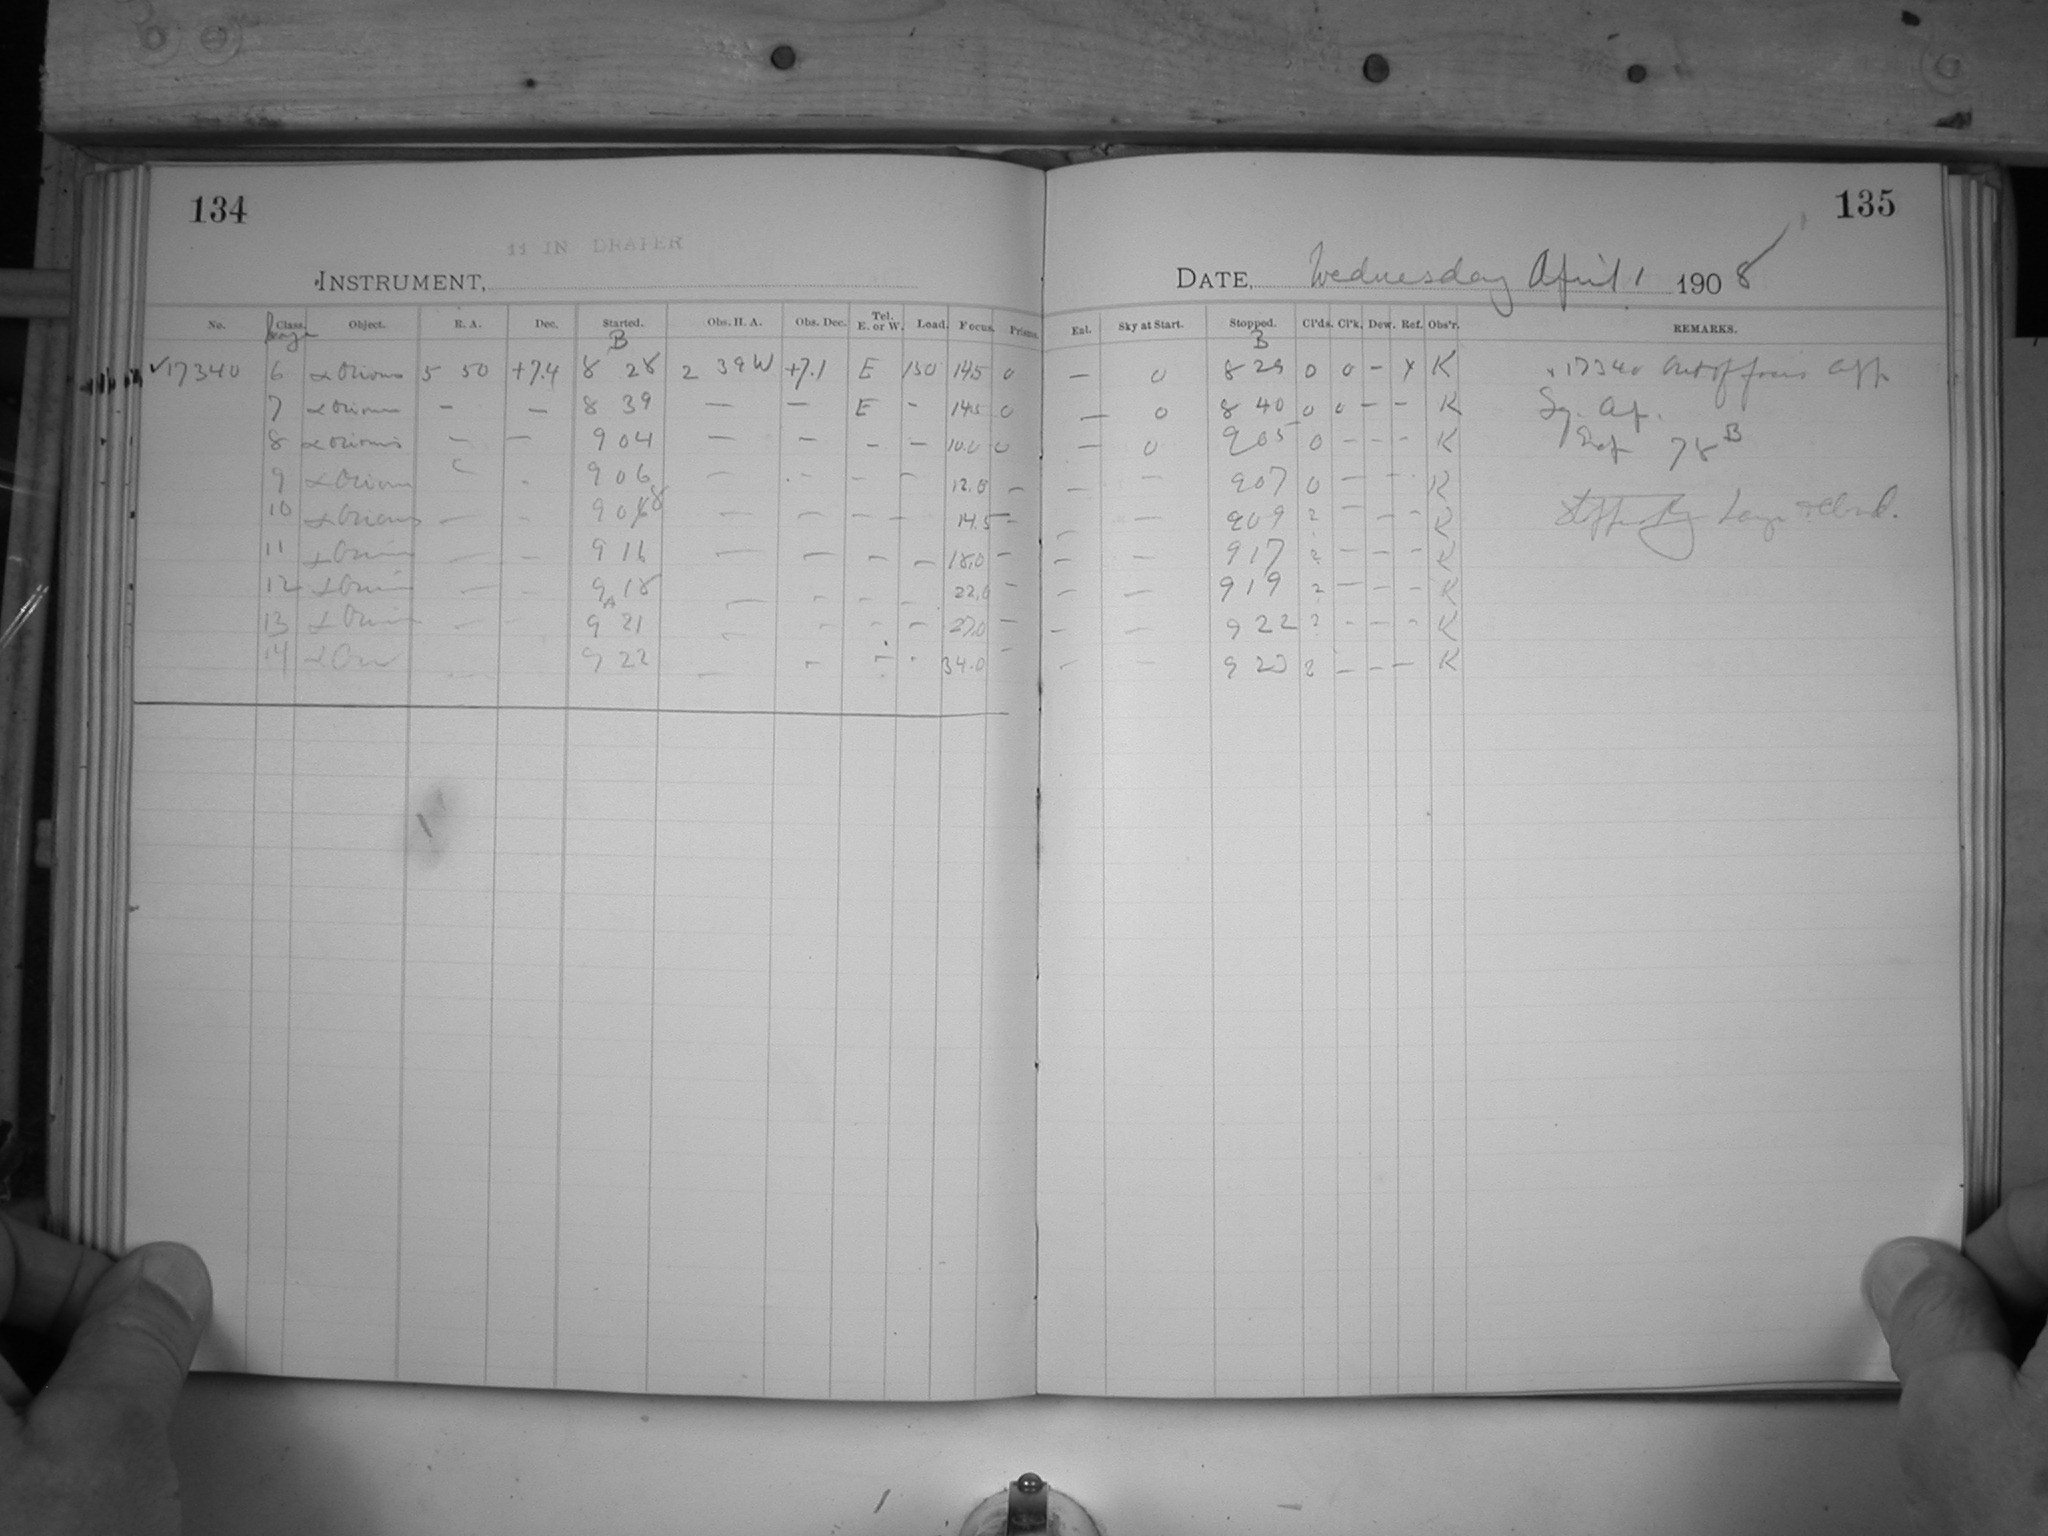 134
11 IN DRAPER
INSTRUMENT,
No. Class. Object. R. A. Dec. Started. Obs. H. A. Obs. Dec. Tel. E. or W. Load. Focus. Prisms.
B
✓17340 6 α Orionis 5 50 +7.4 8 28 2 39 W +7.1 E 150 14.5 0
7 α Orionis — — 8 39 — — E - 14.5 0
8 α Orionis — — 9 04 — — - — 10.0 0
9 α Orionis 9 06 — - - — 12.0 —
10 α Orionis — - 9 08 — — — — 14.5 —
11 α Orionis — — 9 16 — — — — 18.0 —
12 α Orionis — — 9 18 — - - - 22.0 —
13 α Orionis — - 9 21 — - - - 27.0 —
14 α Ori — 9 22 — - - - 34.0 —
135
DATE, Wednesday April 1 1908
Eal. Sky at Start. Stopped. Cl'ds. Cl'k. Dew. Ref. Obs'r. REMARKS.
B
— 0 8 29 0 0 - x K x 17340 out of focus
— 0 8 40 0 0 - - K
— 0 9 05 0 - - - K 78 B
— — 9 07 0 — - - K
— — 9 09 2 — - - K
— — 9 17 2 — - - K
— — 9 19 2 — - - K
— — 9 22 2 - - - K
— — 9 23 2 — - — K